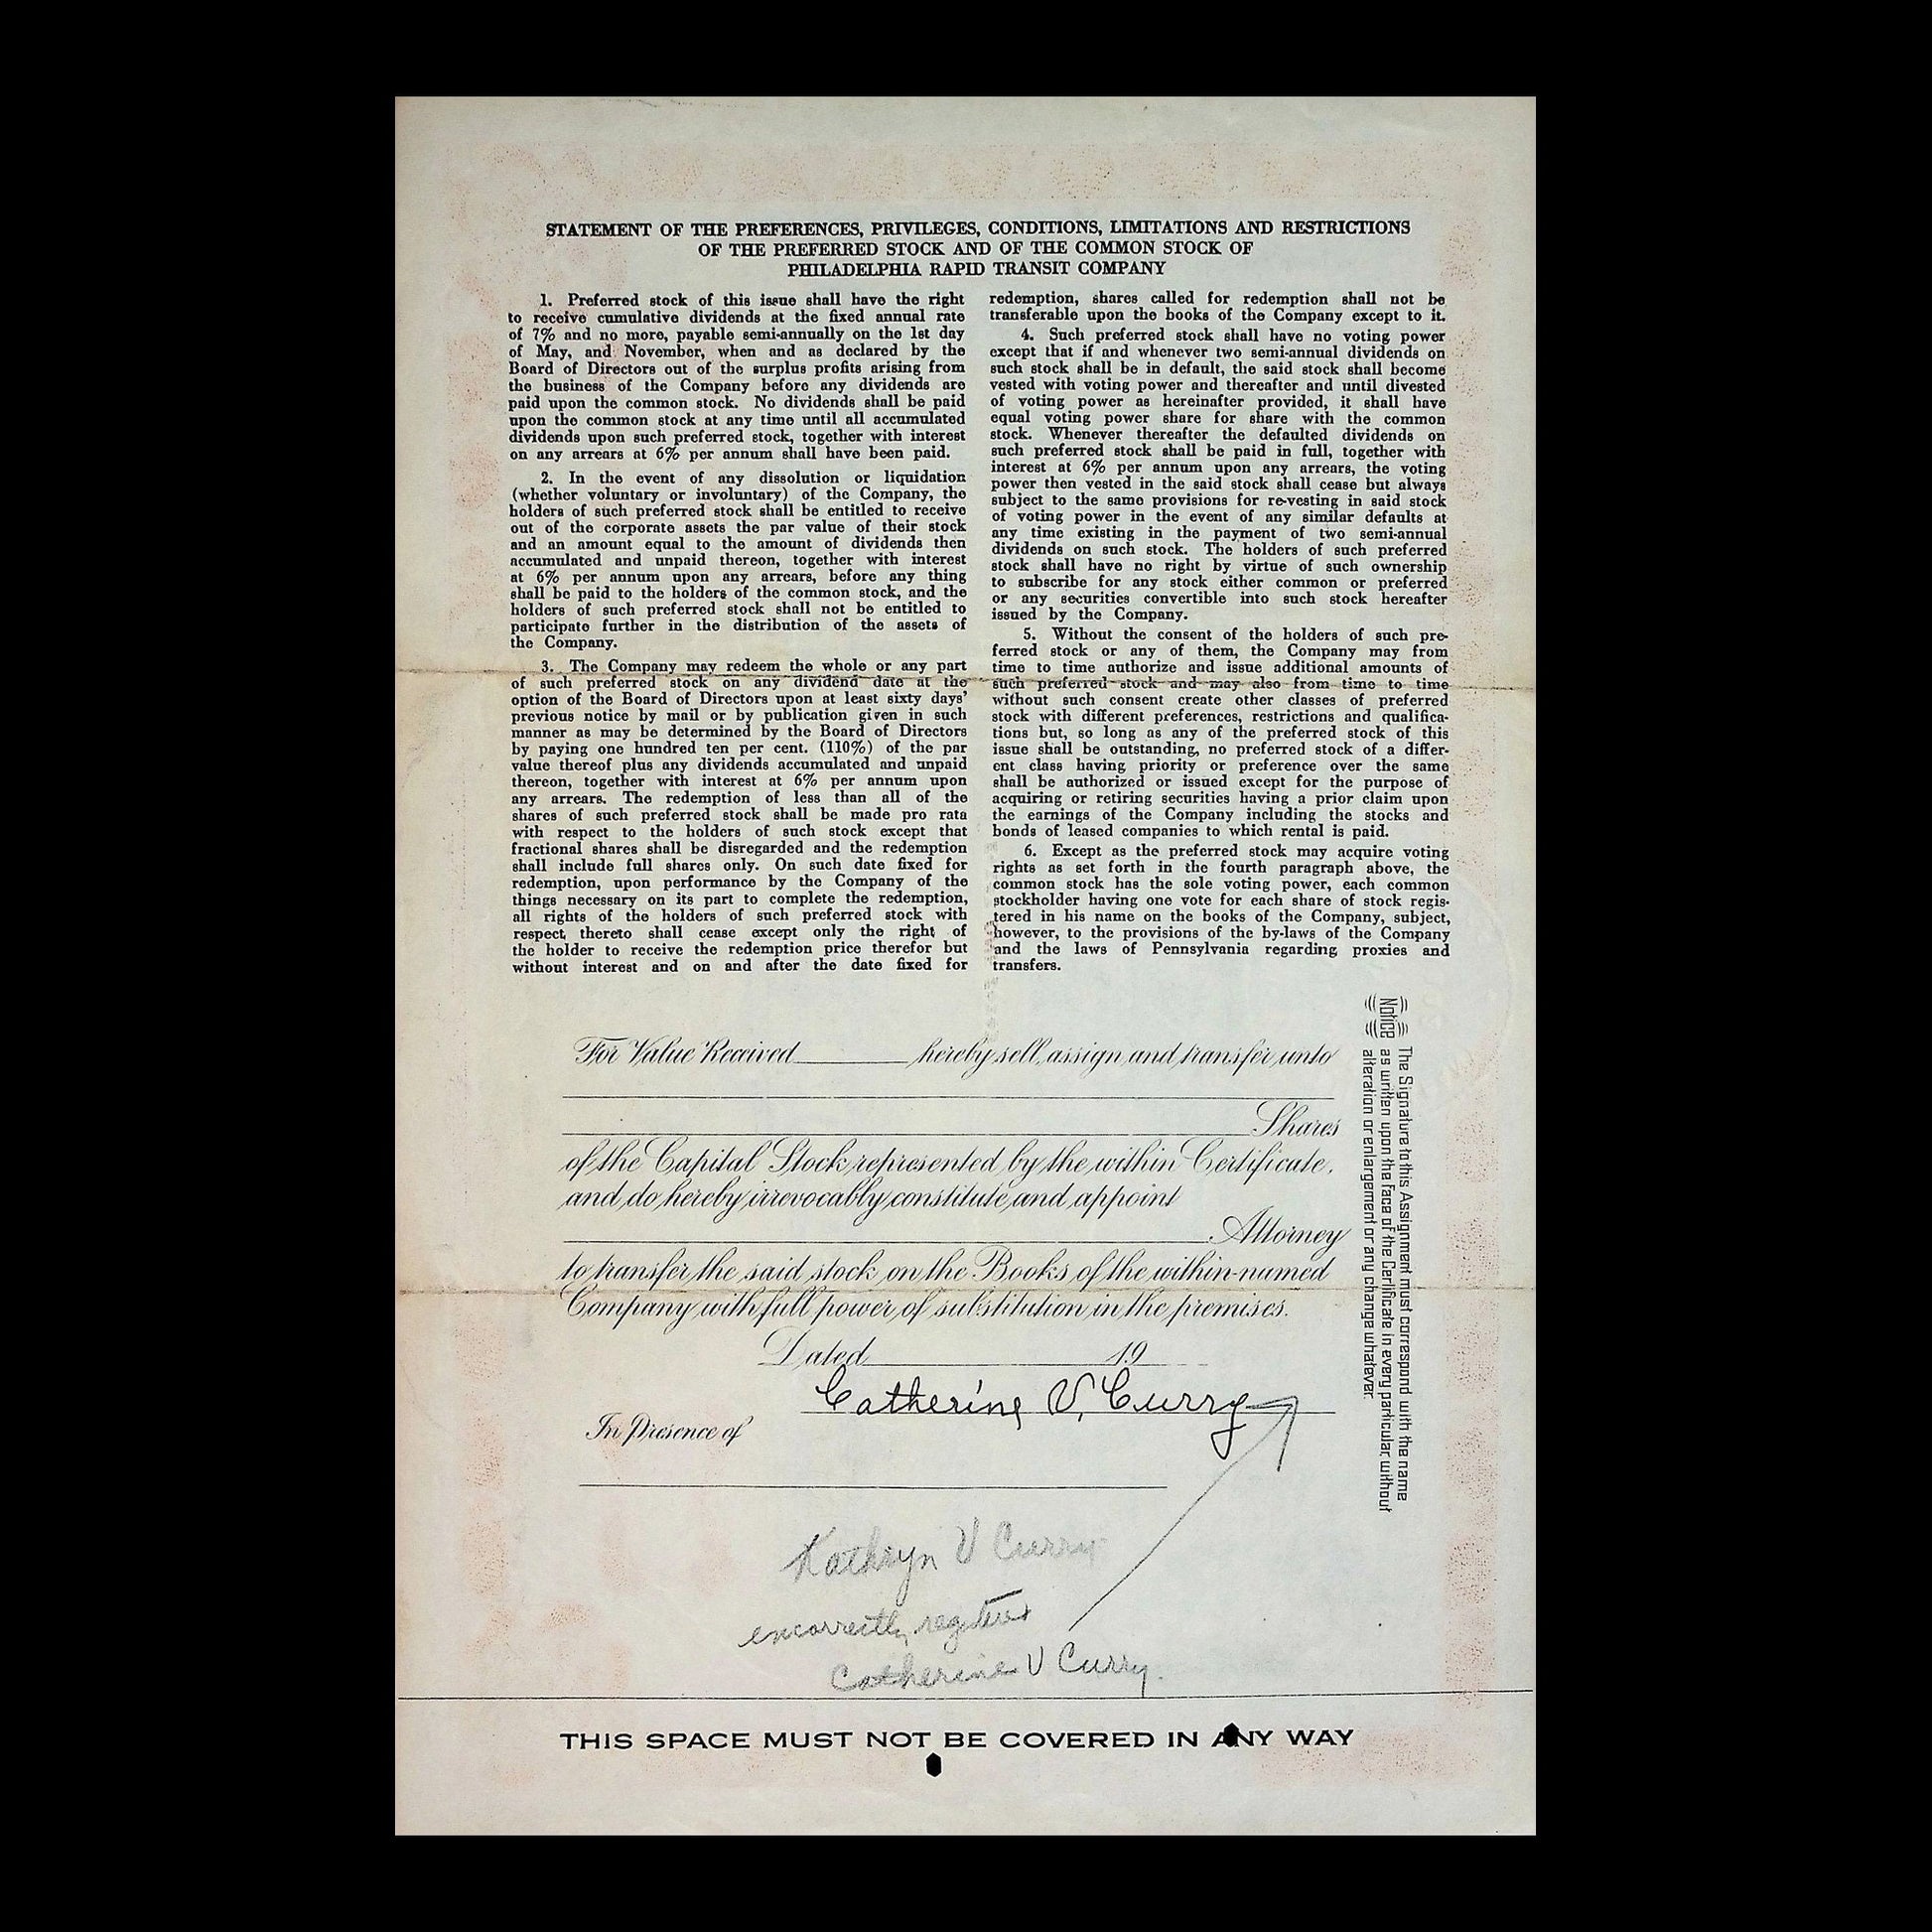 STATEMENT OF THE PREFERENCES, PRIVILEGES, CONDITIONS, LIMITATIONS AND RESTRICTIONS
OF THE PREFERRED STOCK AND OF THE COMMON STOCK OF
PHILADELPHIA RAPID TRANSIT COMPANY
1. Preferred stock of this issue shall have the right
to receive cumulative dividends at the fixed annual rate
of 7% and no more, payable semi-annually on the 1st day
of May, and November, when and as declared by the
Board of Directors out of the surplus profits arising from
the business of the Company before any dividends are
paid upon the common stock. No dividends shall be paid
upon the common stock at any time until all accumulated
dividends upon such preferred stock, together with interest
on any arrears at 6% per annum shall have been paid.
2. In the event of any dissolution or liquidation
(whether voluntary or involuntary) of the Company, the
holders of such preferred stock shall be entitled to receive
out of the corporate assets the par value of their stock
and an amount equal to the amount of dividends then
accumulated and unpaid thereon, together with interest
at 6% per annum upon any arrears, before any thing
shall be paid to the holders of the common stock, and the
holders of such preferred stock shall not be entitled to
participate further in the distribution of the assets of
the Company.
3. The Company may redeem the whole or any part
of such preferred stock on any dividend date at the
option of the Board of Directors upon at least sixty days'
previous notice by mail or by publication given in such
manner as may be determined by the Board of Directors
by paying one hundred ten per cent. (110%) of the par
value thereof plus any dividends accumulated and unpaid
thereon, together with interest at 6% per annum upon
any arrears. The redemption of less than all of the
shares of such preferred stock shall be made pro rata
with respect to the holders of such stock except that
fractional shares shall be disregarded and the redemption
shall include full shares only. On such date fixed for
redemption, upon performance by the Company of the
things necessary on its part to complete the redemption,
all rights of the holders of such preferred stock with
respect thereto shall cease except only the right of
the holder to receive the redemption price therefor but
without interest and on and after the date fixed for
redemption, shares called for redemption shall not be
transferable upon the books of the Company except to it.
4. Such preferred stock shall have no voting power
except that if and whenever two semi-annual dividends on
such stock shall be in default, the said stock shall become
vested with voting power and thereafter and until divested
of voting power as hereinafter provided, it shall have
equal voting power share for share with the common
stock. Whenever thereafter the defaulted dividends on
such preferred stock shall be paid in full, together with
interest at 6% per annum upon any arrears, the voting
power then vested in the said stock shall cease but always
subject to the same provisions for re-vesting in said stock
of voting power in the event of any similar defaults at
any time existing in the payment of two semi-annual
dividends on such stock. The holders of such preferred
stock shall have no right by virtue of such ownership
to subscribe for any stock either common or preferred
or any securities convertible into such stock hereafter
issued by the Company.
5. Without the consent of the holders of such pre-
ferred stock or any of them, the Company may from
time to time authorize and issue additional amounts of
such preferred stock and may also from time to time
without such consent create other classes of preferred
stock with different preferences, restrictions and qualifica-
tions but, so long as any of the preferred stock of this
issue shall be outstanding, no preferred stock of a differ-
ent class having priority or preference over the same
shall be authorized or issued except for the purpose of
acquiring or retiring securities having a prior claim upon
the earnings of the Company including the stocks and
bonds of leased companies to which rental is paid.
6. Except as the preferred stock may acquire voting
rights as set forth in the fourth paragraph above, the
common stock has the sole voting power, each common
stockholder having one vote for each share of stock regis-
tered in his name on the books of the Company, subject,
however, to the provisions of the by-laws of the Company
and the laws of Pennsylvania regarding proxies and
transfers.
For Value Received hereby sell, assign and transfer unto
Shares
of the Capital Stock represented by the within Certificate,
and do hereby irrevocably constitute and appoint
Attorney
to transfer the said stock on the Books of the within-named
Company with full power of substitution in the premises.
Dated 19
Catherine V. Curry
In Presence of
Notice
The Signature to this Assignment must correspond with the name
as written upon the face of the Certificate in every particular, without
alteration or enlargement or any change whatever.
Kathryn V Curry
encorrectly
Catherine V Curry.
THIS SPACE MUST NOT BE COVERED IN ANY WAY